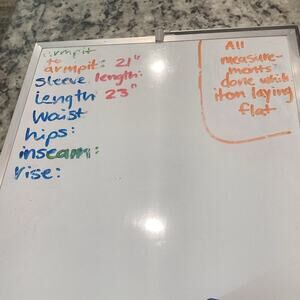 armpit
to
armpit: 21"
sleeve length:
length 23"
Waist
hips:
inseam:
rise:
All
measure-
ments
done while
item laying
flat